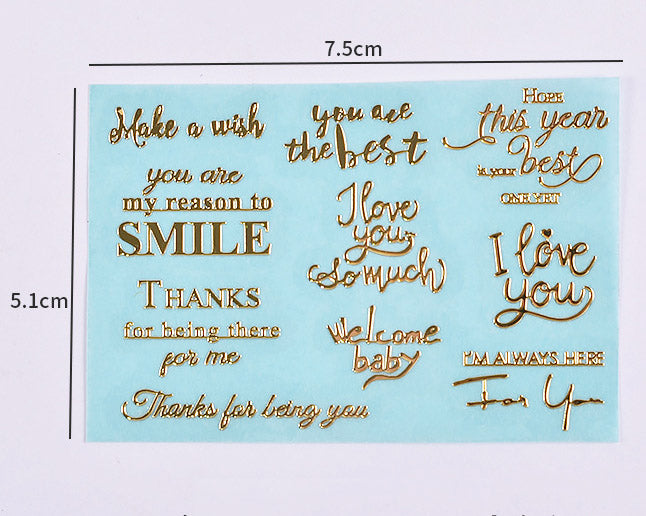 7.5cm
5.1cm
Make a wish
you are
my reason to
SMILE
THANKS
for being there
for me
Thanks for being you
you are
the best
I love
you
so much
Welcome
baby
HOPE
this year
is your best
ONE YET
I love
you
I'M ALWAYS HERE
For You